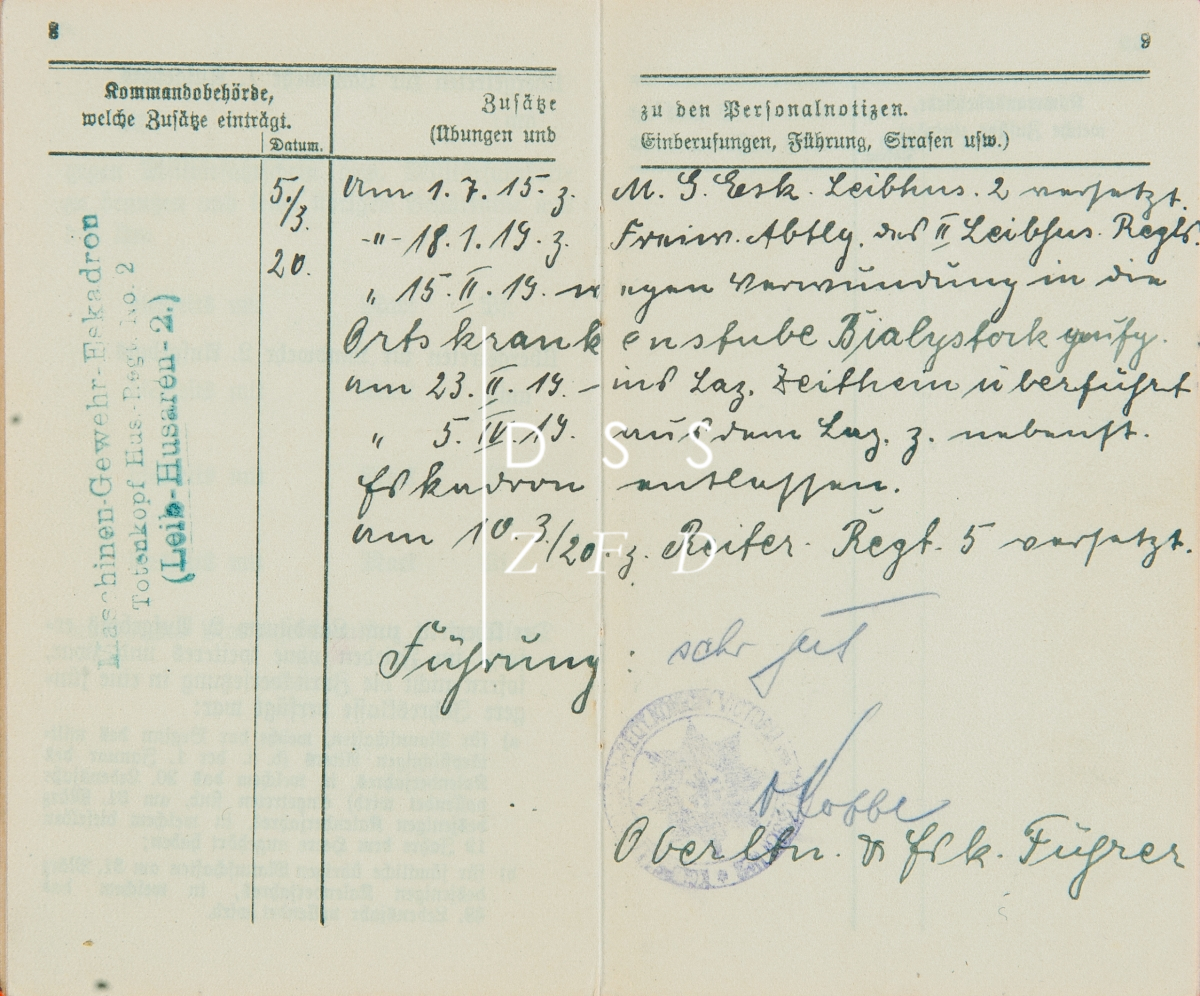 8
9
Kommandobehörde,
welche Zusätze einträgt.
Datum.
Zusätze zu den Personalnotizen.
(Übungen und Einberufungen, Führung, Strafen usw.)
Maschinen-Gewehr-Eskadron
Totenkopf Hus.-Regt. No. 2
(Leib-Husaren-2.)
5./3.
20.
Am 1. 7. 15. z. M. G. Esk. Leibhus. 2 versetzt.
-"- 18. 1. 19. z. Freiw. Abtlg. des II Leibhus. Regts.
" 15. II. 19. wegen Verwundung in die
Ortskrankenstube Bialystock
am 23. II. 19. – ins Laz. Zeithein überführt
" 5. IV. 19. aus dem Laz. z. nebenst.
Eskadron entlassen.
Am 10. 3./20. z. Reiter. Regt. 5 versetzt.
Führung: sehr gut
Oberltn. & Esk. Führer
DSS
ZFD